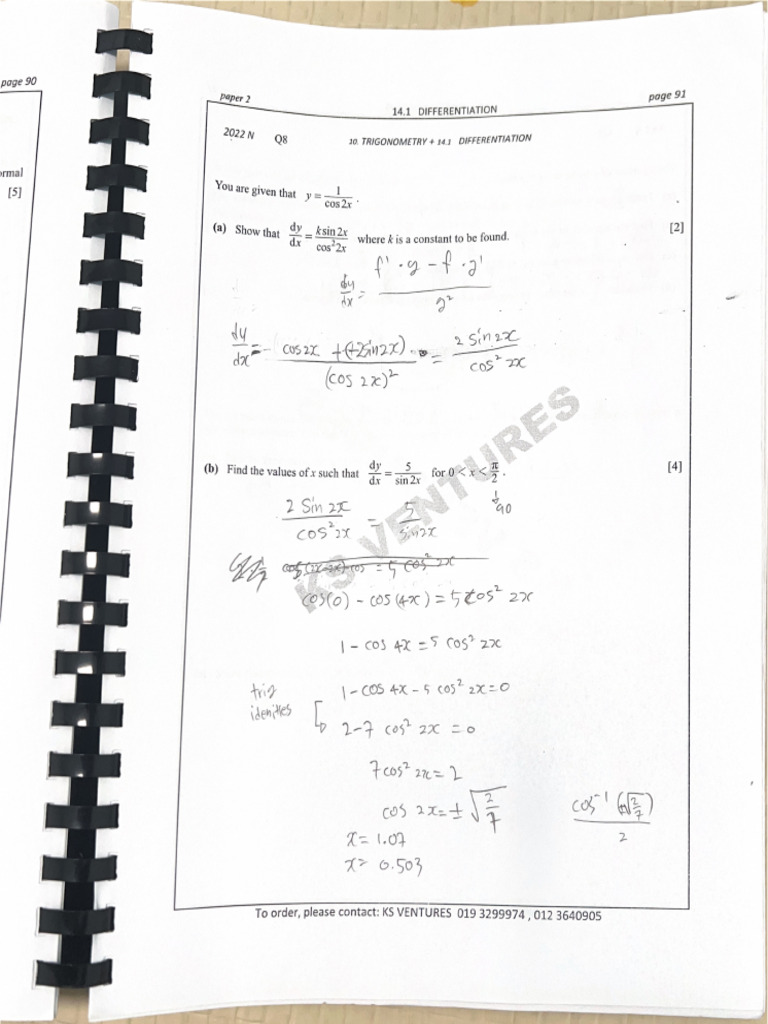 page 90
ormal
[5]
paper 2
14.1 DIFFERENTIATION
page 91
2022 N Q8 10. TRIGONOMETRY + 14.1 DIFFERENTIATION
You are given that y = 1/cos2x .
(a) Show that dy/dx = k sin 2x/cos²2x where k is a constant to be found. [2]
dy/dx = (f' · g − f · g')/g²
dy/dx = − cos2x +(+2sin2x) / (cos 2x)² = 2 sin 2x / cos² 2x
KS VENTURES
(b) Find the values of x such that dy/dx = 5/sin 2x for 0 < x < π/2 . [4]
90
2 Sin 2x / cos² 2x = 5 / sin2x
= 5 cos² 2x
cos(0) − cos (4x) = 5 cos² 2x
1 − cos 4x = 5 cos² 2x
1 − cos 4x − 5 cos² 2x = 0
trig
idenities
2 − 7 cos² 2x = 0
7 cos² 2x = 2
cos 2x = ± √(2/7)
cos⁻¹ (±√(2/7)) / 2
x = 1.07
x = 0.503
To order, please contact: KS VENTURES 019 3299974 , 012 3640905